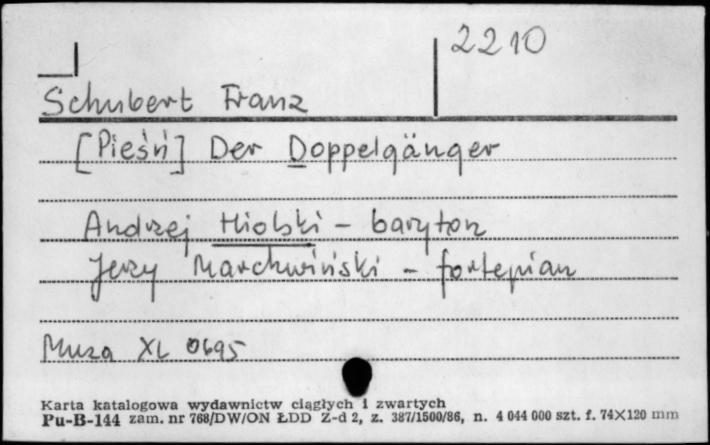 2210
Schubert Franz
[Pieśń] Der Doppelgänger
Andrzej Hiolski - baryton
Jerzy Marchwiński - fortepian
Muza XL 0695
Karta katalogowa wydawnictw ciągłych i zwartych
Pu-B-144 zam. nr 768/DW/ON ŁDD Z-d 2, z. 387/1500/86, n. 4 044 000 szt. f. 74X120 mm